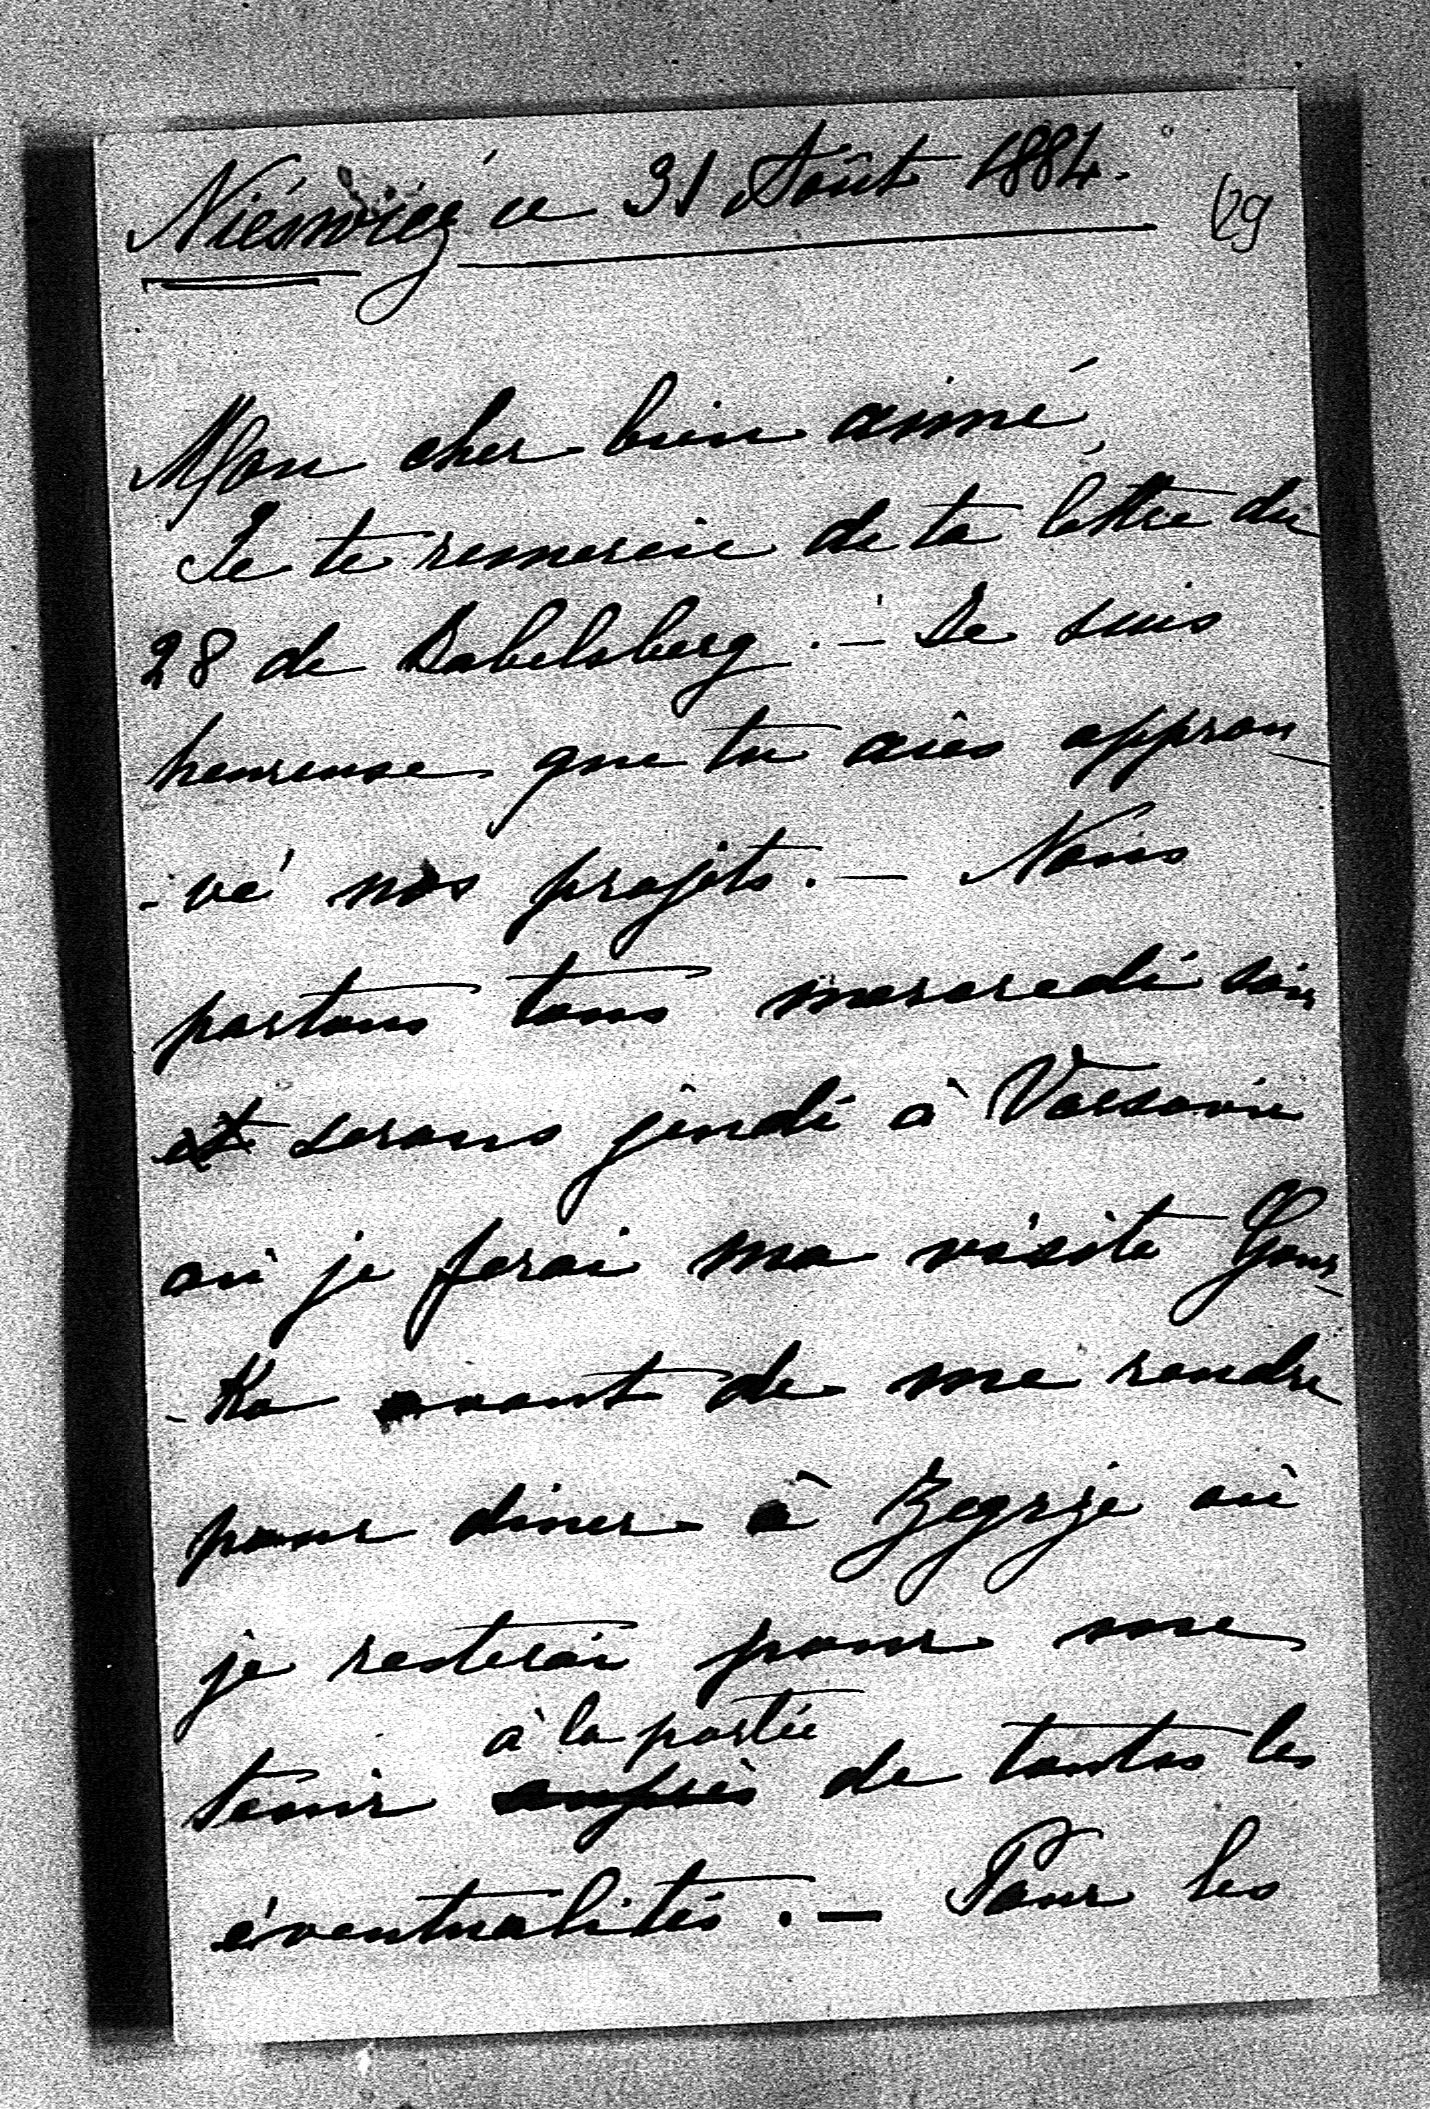 Nieśwież ce 31 Août 1884.
129
Mon cher bien aimé,
Je te remercie de ta lettre du
28 de Babelsberg. – Je suis
heureuse que tu aies approu
-vé nos projets. – Nous
partons tous mercredi soir
et serons jeudi à Varsovie
où je ferai ma visite Gour
-Ko avant de me rendre
pour diner à Zegrze où
je resterai pour me
à la portée
tenir auprès de toutes les
éventualités. – Pour les